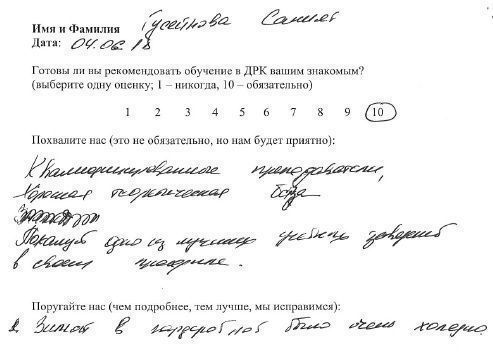 Имя и Фамилия Гусейнова Саният
Дата: 04.06.18
Готовы ли вы рекомендовать обучение в ДРК вашим знакомым?
(выберите одну оценку; 1 – никогда, 10 – обязательно)
1 2 3 4 5 6 7 8 9 10
Похвалите нас (это не обязательно, но нам будет приятно):
Квалифицированные преподаватели,
Хорошая теоретическая база
Пожалуй одно из лучших учебных заведений
в своем профиле.
Поругайте нас (чем подробнее, тем лучше, мы исправимся):
Зимой в гардеробной было очень холодно